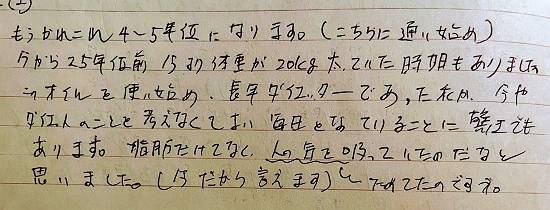 (一)
もうかれこれ4~5年位になります。(こちらに通い始め)
今から25年位前 今より体重が20kg太っていた時期もありました
このオイルを使い始め、長年ダイエッターであった私が、今や
ダイエットのことを考えなくてよい毎日となっていることに驚きでも
あります。脂肪だけでなく、人の気を吸っていたのだなと
思いました。(今だから言えます) ためてたのですね。